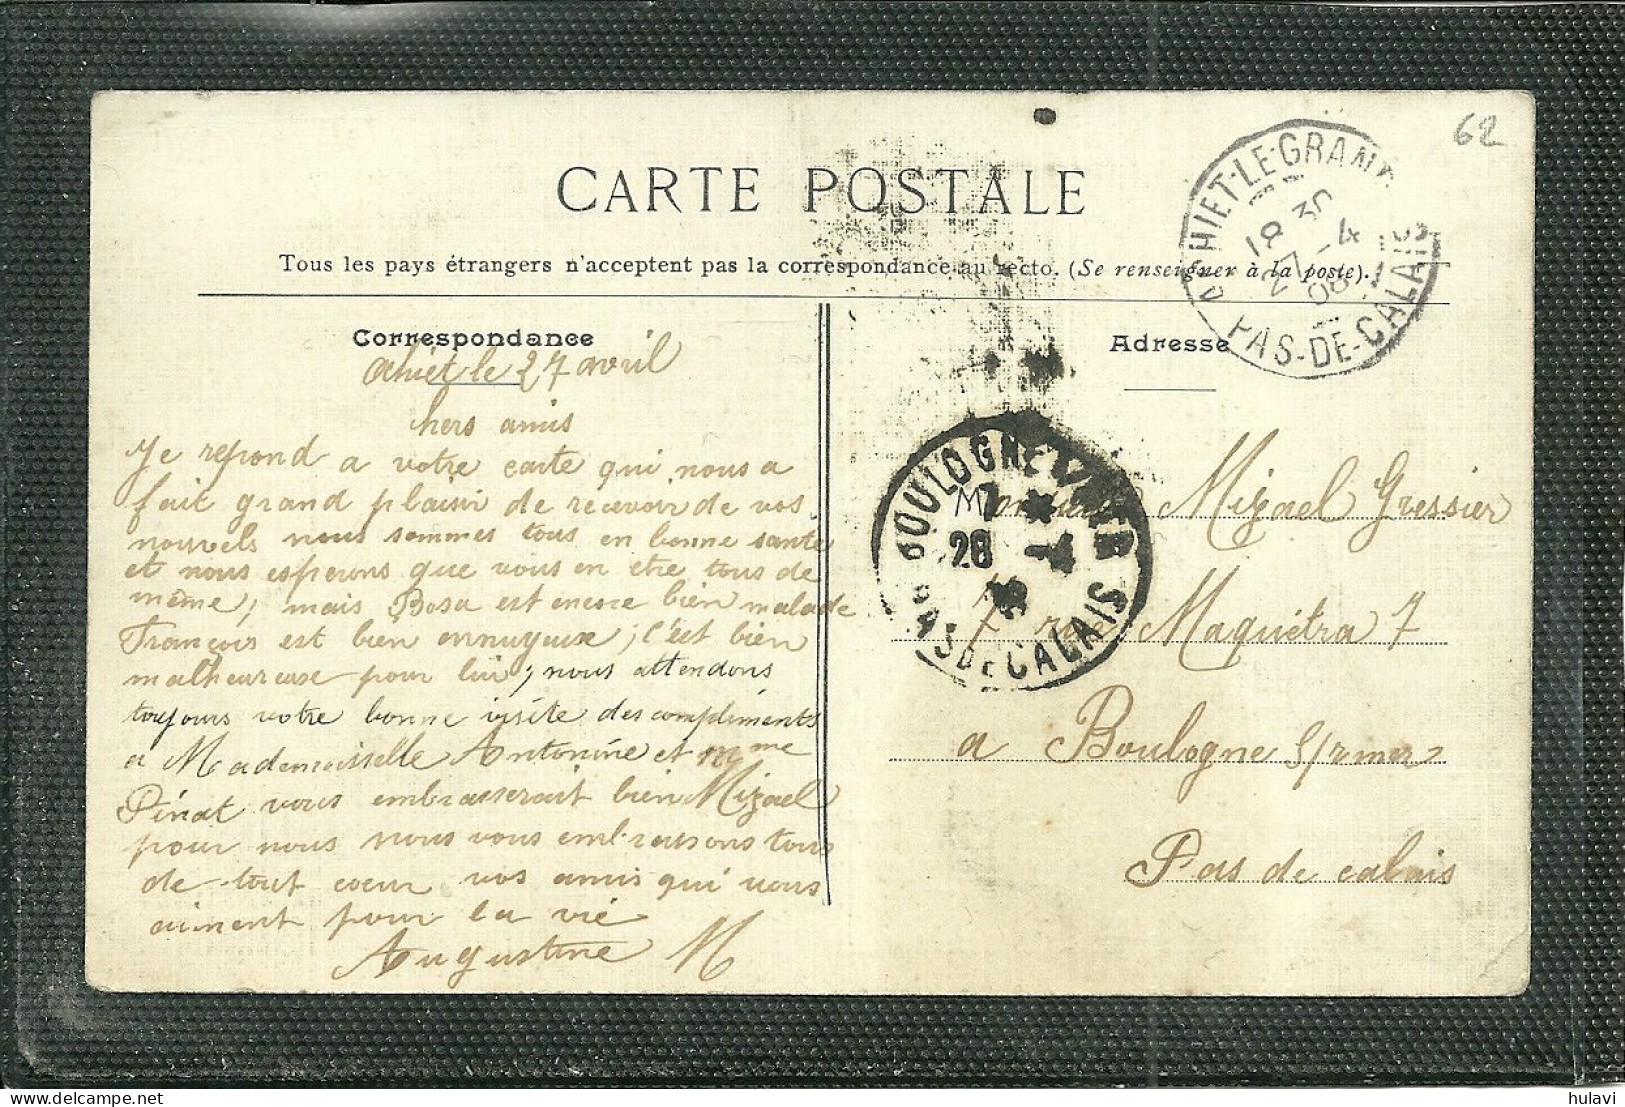 62
CARTE POSTALE
Tous les pays étrangers n'acceptent pas la correspondance au recto. (Se renseigner à la poste).
ACHIET-LE-GRAND
18 30
27 - 4
08
PAS-DE-CALAIS
Correspondance
Adresse
ahiet le 27 avril
hers amis
Je repond a votre carte qui nous a
fait grand plaisir de recevoir de vos
nouvels nous sommes tous en bonne santé
et nous esperons que vous en etre tous de
même, mais Rosa est encore bien malade
François est bien ennuyeux, c'est bien
malheureuse pour lui, nous attendons
toujours votre bonne visite des compliments
a Mademoiselle Antonine et Mme
Pinat vous embrasserait bien Mizael
pour nous nous vous embrassons tous
de tout coeur vos amis qui vous
aiment pour la vie
Augustine M
BOULOGNE S MER
28
PAS DE CALAIS
Monsieur Mizael Gressier
7 rue Maquétra 7
a Boulogne s/r mer
Pas de calais
hulavi